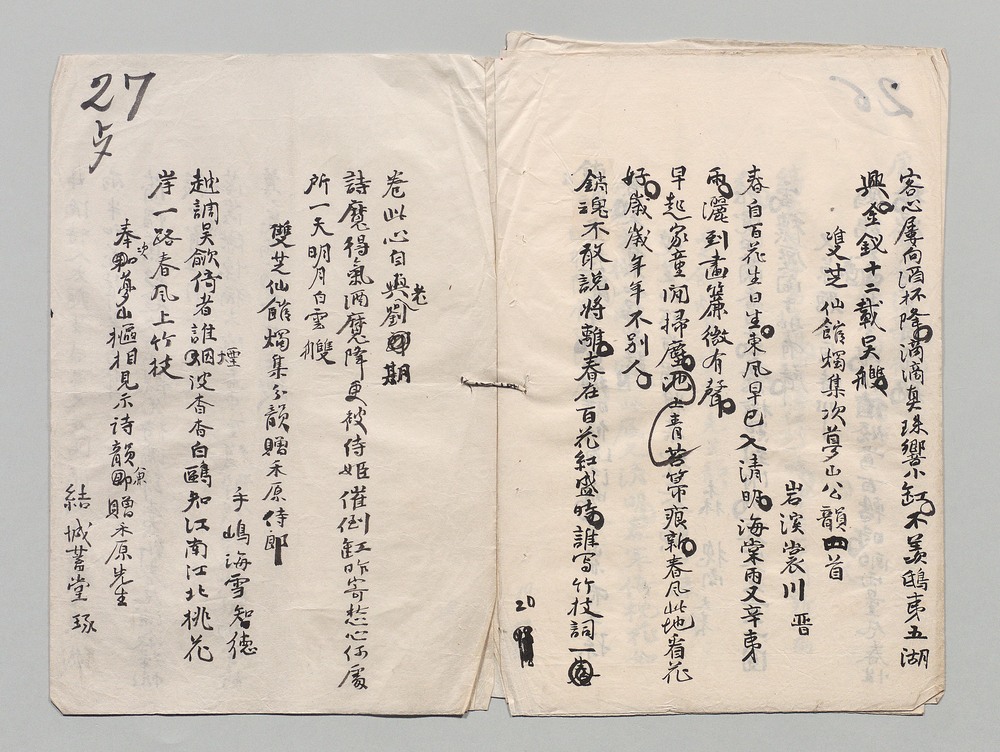 26
客心屢向酒杯降滴滴真珠響小缸不羨鴟夷五湖
興金釵十二載吳艭
雙芝仙館燭集次夢山公韻四首
岩溪裳川 晋
春自百花生日生東風早已入清明海棠雨又辛夷
雨灑到畫簾微有聲
早起家童閒掃塵池上青苔帚痕新春風此地看花
好歲歲年年不別人
銷魂不敢說將離春在百花紅盛時誰写竹枝詞一
20
27
卷此心自與劉老期
詩魔得氣酒魔降更被侍姬催倒缸昨寄愁心何處
所一天明月白雲艭
雙芝仙館燭集分韻贈禾原侍郎
手嶋海雪智徳
越調吳歈倚者誰煙波杳杳白鷗知江南江北桃花
岸一路春風上竹枝
奉次夢山樞相見示詩韻兼贈禾原先生
結城蓄堂 琢